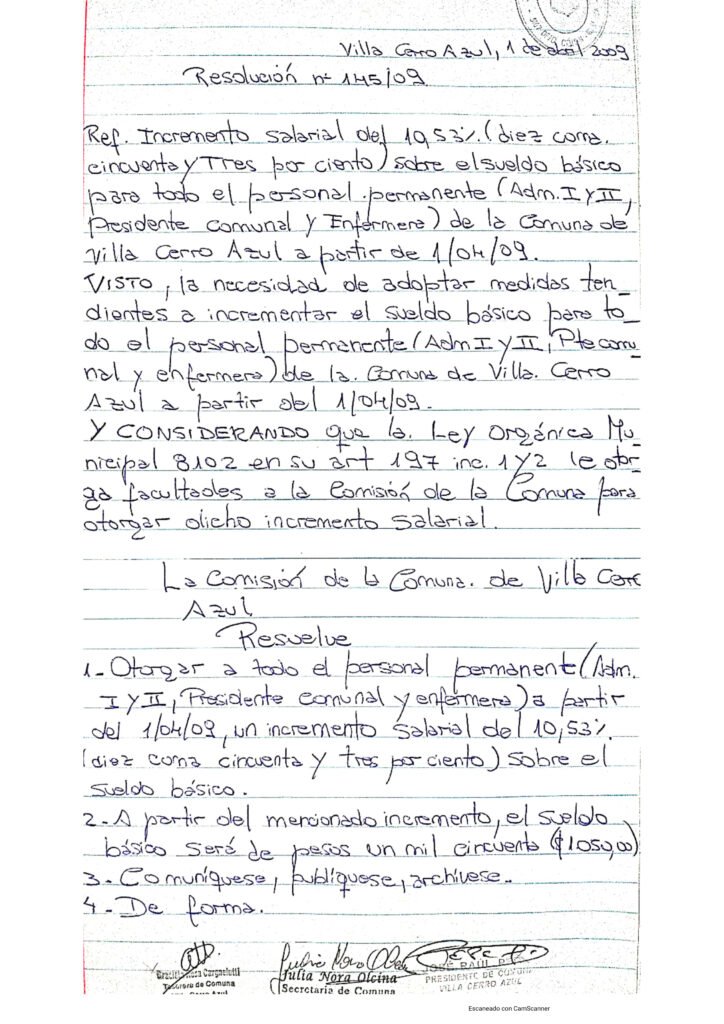 Villa Cerro Azul, 1 de abril 2009
Resolución nº 145/09
Ref. Incremento salarial del 10,53%. (diez coma
cincuenta y Tres por ciento) sobre el sueldo básico
para todo el personal permanente (Adm. I y II,
Presidente comunal y Enfermera) de la Comuna de
Villa Cerro Azul a partir de 1/04/09.
VISTO, la necesidad de adoptar medidas ten_
dientes a incrementar el sueldo básico para to_
do el personal permanente (Adm I y II, Pte comu_
nal y enfermera) de la. Comuna de Villa. Cerro
Azul a partir del 1/04/09.
Y CONSIDERANDO que la. Ley Orgánica Mu_
nicipal 8102 en su art 197 inc. 1 y 2 le otor_
ga facultades a la Comisión de la Comuna para
otorgar dicho incremento salarial.
La Comisión de la Comuna. de Villa Cerr
Azul
Resuelve
1- Otorgar a todo el personal permanent (Adm.
I y II, Presidente comunal y enfermera) a partir
del 1/04/09, un incremento salarial del 10,53%
(diez coma cincuenta y tres por ciento) sobre el
sueldo básico.
2- A partir del mencionado incremento, el sueldo
básico será de pesos un mil cincuenta ($1050,00)
3- Comuníquese, publíquese, archívese.-
4- De forma.
Cargnelutti
Tesorera de Comuna
Julia Nora Olcina
Secretaria de Comuna
JOSE RAUL
PRESIDENTE DE COMUNA
VILLA CERRO AZUL
Escaneado con CamScanner